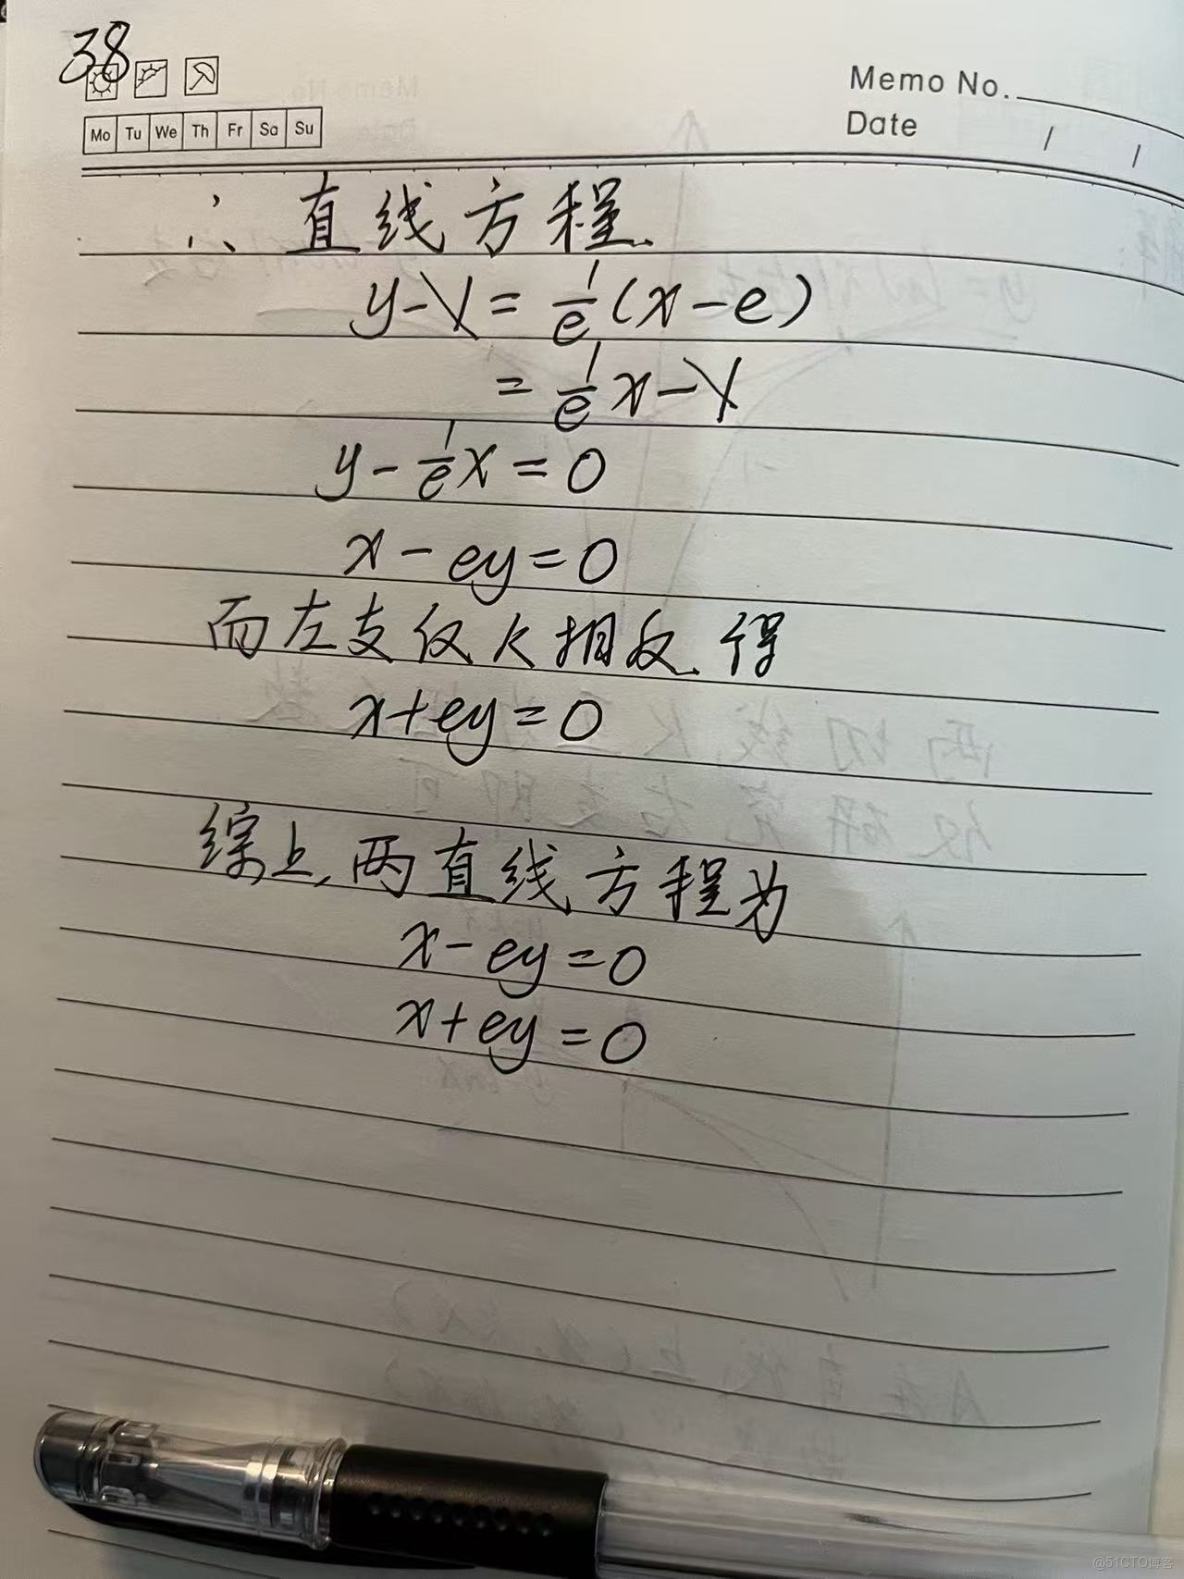 38
Memo No.
Mo Tu We Th Fr Sa Su
Date / /
∴ 直线方程
y-1=1/e(x-e)
=1/e x-1
y-1/e x=0
x-ey=0
而左支仅K相反,得
x+ey=0
综上,两直线方程为
x-ey=0
x+ey=0
@51CTO博客